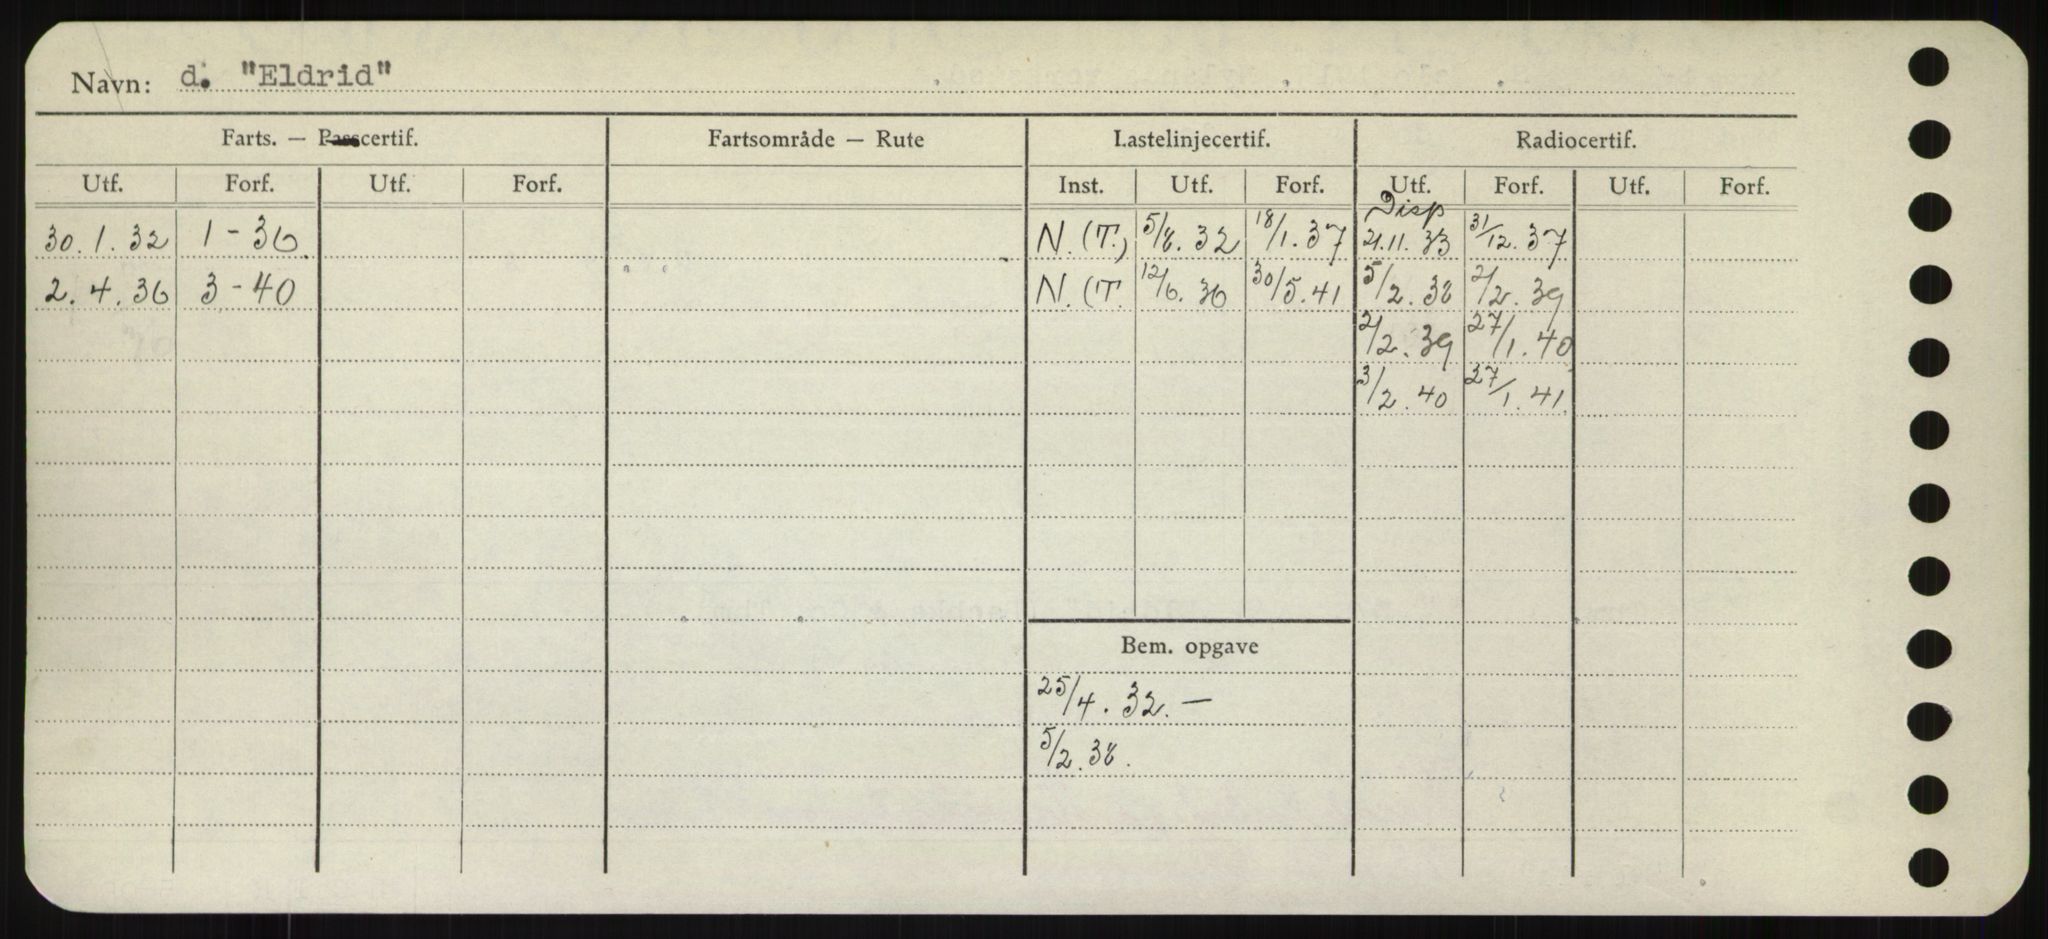 Navn: d. "Eldrid"
Farts. — Passcertif. Fartsområde — Rute Lastelinjecertif. Radiocertif.
Utf. Forf. Utf. Forf. Inst. Utf. Forf. Utf. Forf. Utf. Forf.
Disp
30.1.32 1-36 N.(T.) 5/8.32 18/1.37 21.11.33 31/12.37
2.4.36 3-40 N.(T. 12/6.36 30/5.41 5/2.38 2/2.39
2/2.39 27/1.40
3/2.40 27/1.41
Bem. opgave
25/4.32.—
5/2.38.